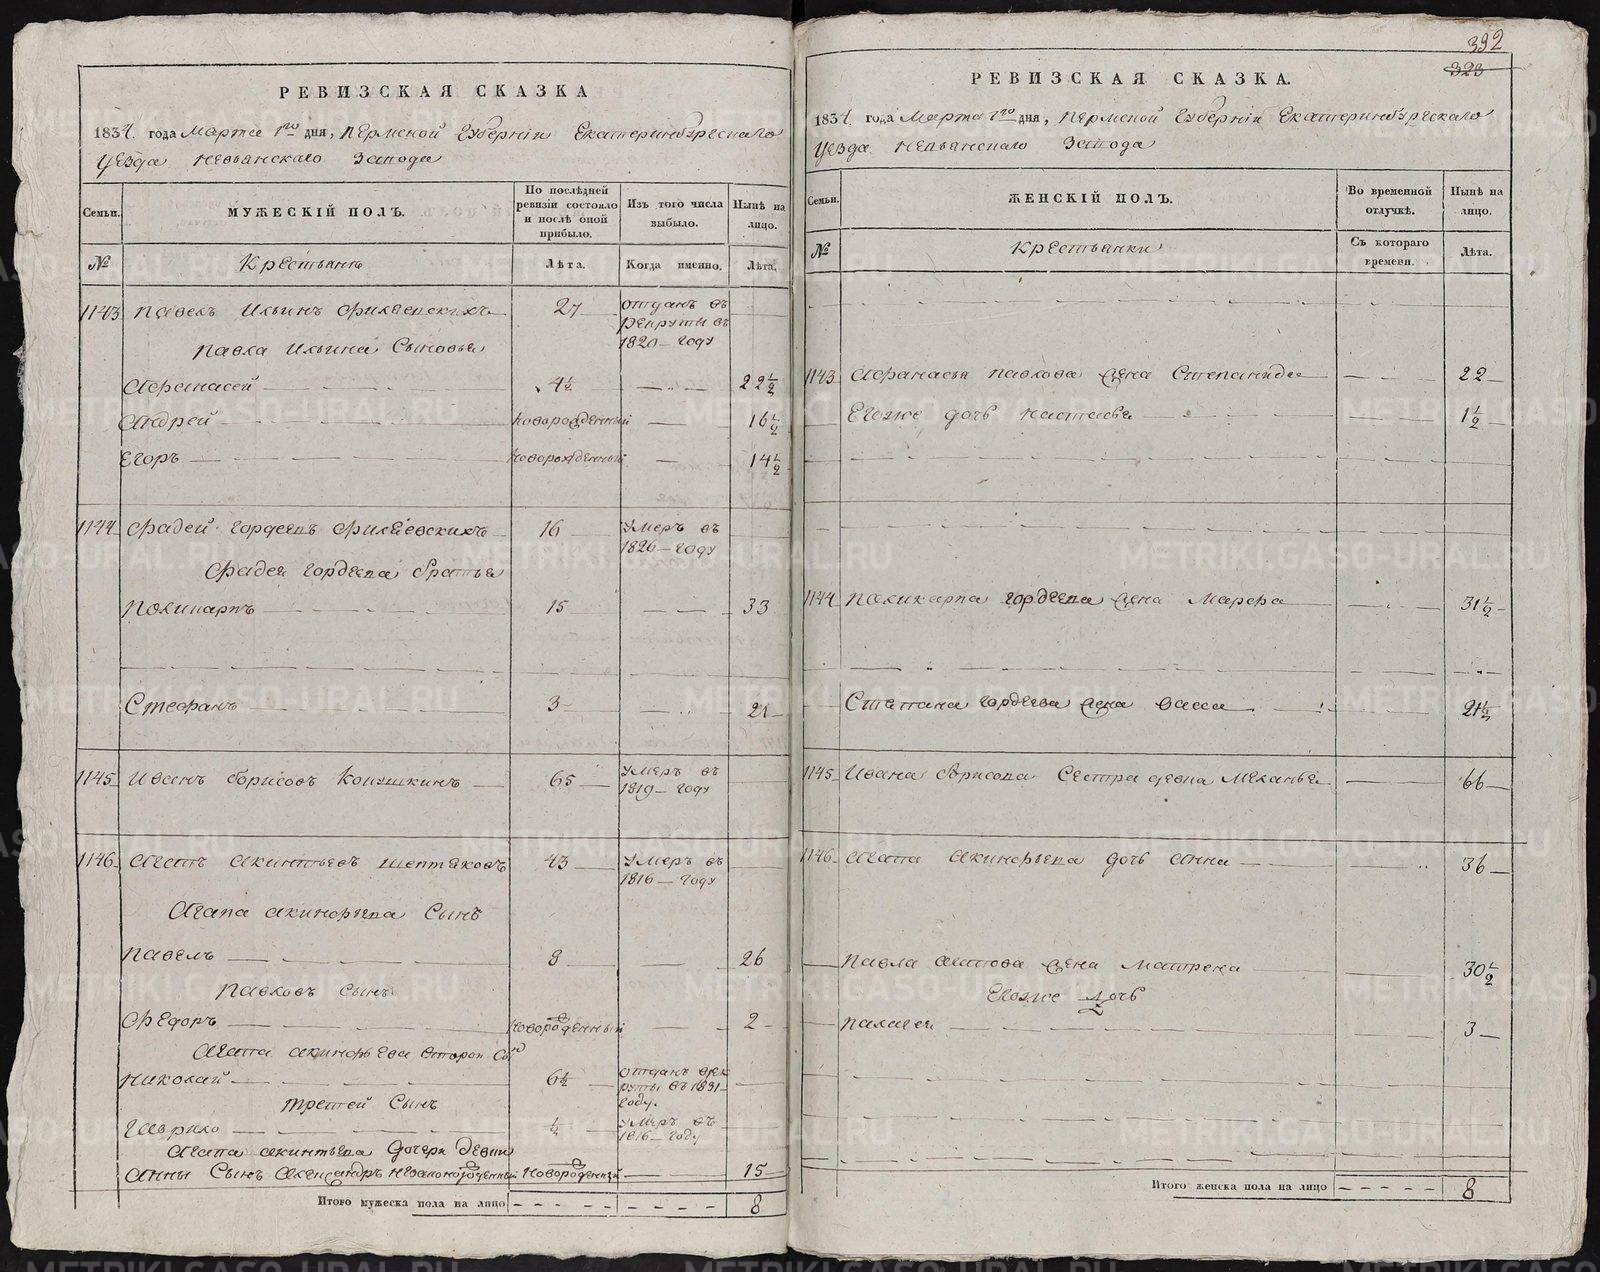 РЕВИЗСКАЯ СКАЗКА
1834. года Марта 1го дня, Пермской Губернiи Екатеринбургскаго
Уезда Невьянскаго Завода
Семьи.
МУЖЕСКIЙ ПОЛЪ.
По послѣдней ревизiи состояло и послѣ оной прибыло.
Изъ того числа выбыло.
Нынѣ на лицо.
№
Крестьянъ
Лѣта.
Когда именно.
Лѣта.
1143 Павелъ Ильинъ Филеевскихъ 27 отданъ въ рекруты въ 1820 году
Павла Ильина Сыновья
Афанасей 4½ 22½
Андрей новорожденный 16½
Егоръ новорожденный 14½
1144 Фадей Гордеевъ Филеевскихъ 16 умеръ въ 1826 году
Фадея Гордеева братья
Поликарпъ 15 33
Стефанъ 3 21
1145 Иванъ Борисовъ Конушкинъ 65 умеръ въ 1819 году
1146 Агапъ Акинтьевъ Шептаковъ 43 умеръ въ 1816 году
Агапа Акинфьева Сынъ
Павелъ 8 26
Павловъ Сынъ
Федоръ новорожденный 2
Агапа Акинфьева второй Сынъ
Николай 6½ отданъ в рекруты въ 1831 году.
третей Сынъ
Гаврило ½ умеръ въ 1816 году
Агапа Акинтьева дочери девки
Анны Сынъ Александръ незаконорожденный новорожденный 15
Итого мужеска пола на лицо 8
392
323
РЕВИЗСКАЯ СКАЗКА.
1834. года Марта 1го дня, Пермской Губернiй Екатеринбургскаго
Уезда Невьянскаго Завода
Семьи.
ЖЕНСКIЙ ПОЛЪ.
Во временной отлучкѣ.
Нынѣ на лицо.
№
Крестьянки
Съ котораго времени.
Лѣта.
1143 Афанасья Павлова жена Степанида 22
Егоже дочь Настасья 1½
1144 Поликарпа Гордеева жена Марфа 31½
Степана Гордеева жена Васса 21½
1145 Ивана Борисова Сестра девка Меланья 66
1146 Агапа Акинфьева дочь Анна 36
Павла Агапова жена Матрена 30½
Егоже дочь
Палагея 3
Итого женска пола на лицо 8
METRIKI.GASO-URAL.RU